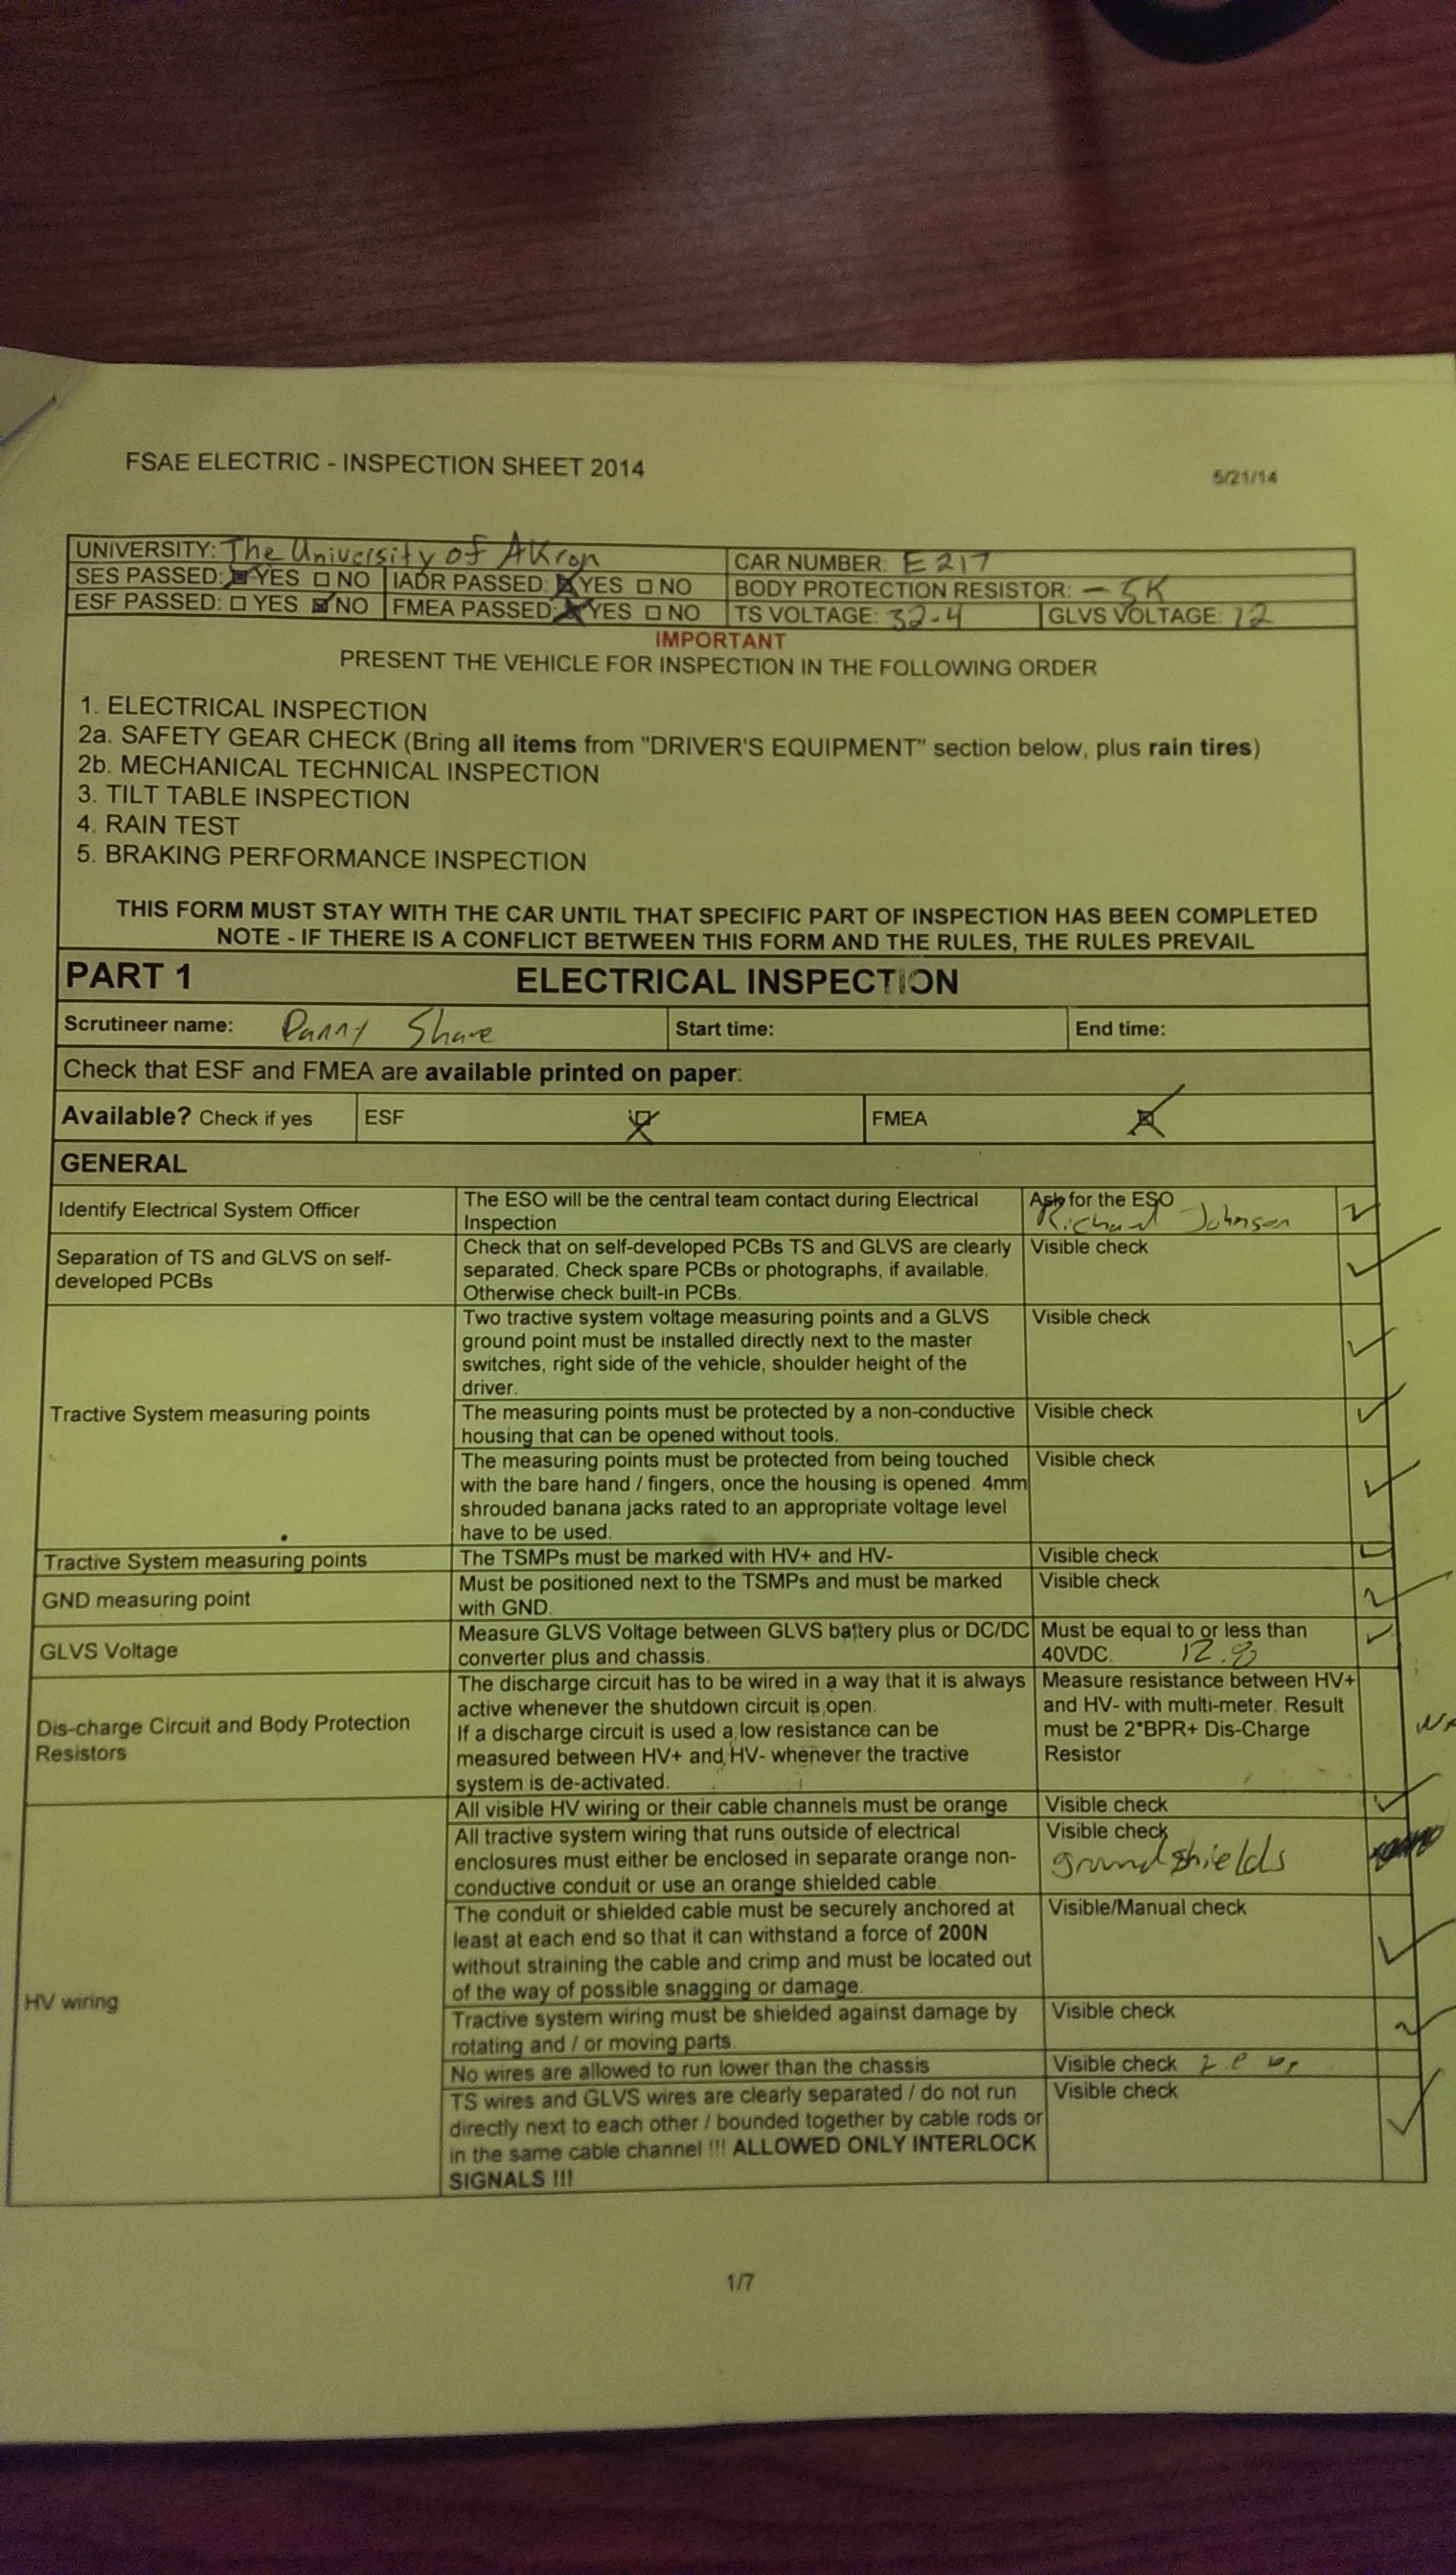 FSAE ELECTRIC - INSPECTION SHEET 2014
5/21/14
UNIVERSITY: The University of Akron CAR NUMBER: E217
SES PASSED: YES NO IADR PASSED: YES NO BODY PROTECTION RESISTOR: - 5K
ESF PASSED: YES NO FMEA PASSED: YES NO TS VOLTAGE: 32-4 GLVS VOLTAGE: 12
IMPORTANT
PRESENT THE VEHICLE FOR INSPECTION IN THE FOLLOWING ORDER
1. ELECTRICAL INSPECTION
2a. SAFETY GEAR CHECK (Bring all items from "DRIVER'S EQUIPMENT" section below, plus rain tires)
2b. MECHANICAL TECHNICAL INSPECTION
3. TILT TABLE INSPECTION
4. RAIN TEST
5. BRAKING PERFORMANCE INSPECTION
THIS FORM MUST STAY WITH THE CAR UNTIL THAT SPECIFIC PART OF INSPECTION HAS BEEN COMPLETED
NOTE - IF THERE IS A CONFLICT BETWEEN THIS FORM AND THE RULES, THE RULES PREVAIL
PART 1 ELECTRICAL INSPECTION
Scrutineer name: Danny Start time: End time:
Check that ESF and FMEA are available printed on paper:
Available? Check if yes ESF FMEA
GENERAL
Identify Electrical System Officer
The ESO will be the central team contact during Electrical
Inspection
Ask for the ESO
Richard Johnson
Separation of TS and GLVS on self-
developed PCBs
Check that on self-developed PCBs TS and GLVS are clearly
separated. Check spare PCBs or photographs, if available.
Otherwise check built-in PCBs.
Visible check
Tractive System measuring points
Two tractive system voltage measuring points and a GLVS
ground point must be installed directly next to the master
switches, right side of the vehicle, shoulder height of the
driver.
Visible check
The measuring points must be protected by a non-conductive
housing that can be opened without tools.
Visible check
The measuring points must be protected from being touched
with the bare hand / fingers, once the housing is opened. 4mm
shrouded banana jacks rated to an appropriate voltage level
have to be used.
Visible check
Tractive System measuring points
The TSMPs must be marked with HV+ and HV-
Visible check
GND measuring point
Must be positioned next to the TSMPs and must be marked
with GND.
Visible check
GLVS Voltage
Measure GLVS Voltage between GLVS battery plus or DC/DC
converter plus and chassis.
Must be equal to or less than
40VDC. 12.8
Dis-charge Circuit and Body Protection
Resistors
The discharge circuit has to be wired in a way that it is always
active whenever the shutdown circuit is open.
If a discharge circuit is used a low resistance can be
measured between HV+ and HV- whenever the tractive
system is de-activated.
Measure resistance between HV+
and HV- with multi-meter. Result
must be 2*BPR+ Dis-Charge
Resistor
HV wiring
All visible HV wiring or their cable channels must be orange
Visible check
All tractive system wiring that runs outside of electrical
enclosures must either be enclosed in separate orange non-
conductive conduit or use an orange shielded cable.
Visible check
ground shields
The conduit or shielded cable must be securely anchored at
least at each end so that it can withstand a force of 200N
without straining the cable and crimp and must be located out
of the way of possible snagging or damage.
Visible/Manual check
Tractive system wiring must be shielded against damage by
rotating and / or moving parts.
Visible check
No wires are allowed to run lower than the chassis
Visible check
TS wires and GLVS wires are clearly separated / do not run
directly next to each other / bounded together by cable rods or
in the same cable channel !!! ALLOWED ONLY INTERLOCK
SIGNALS !!!
Visible check
1/7